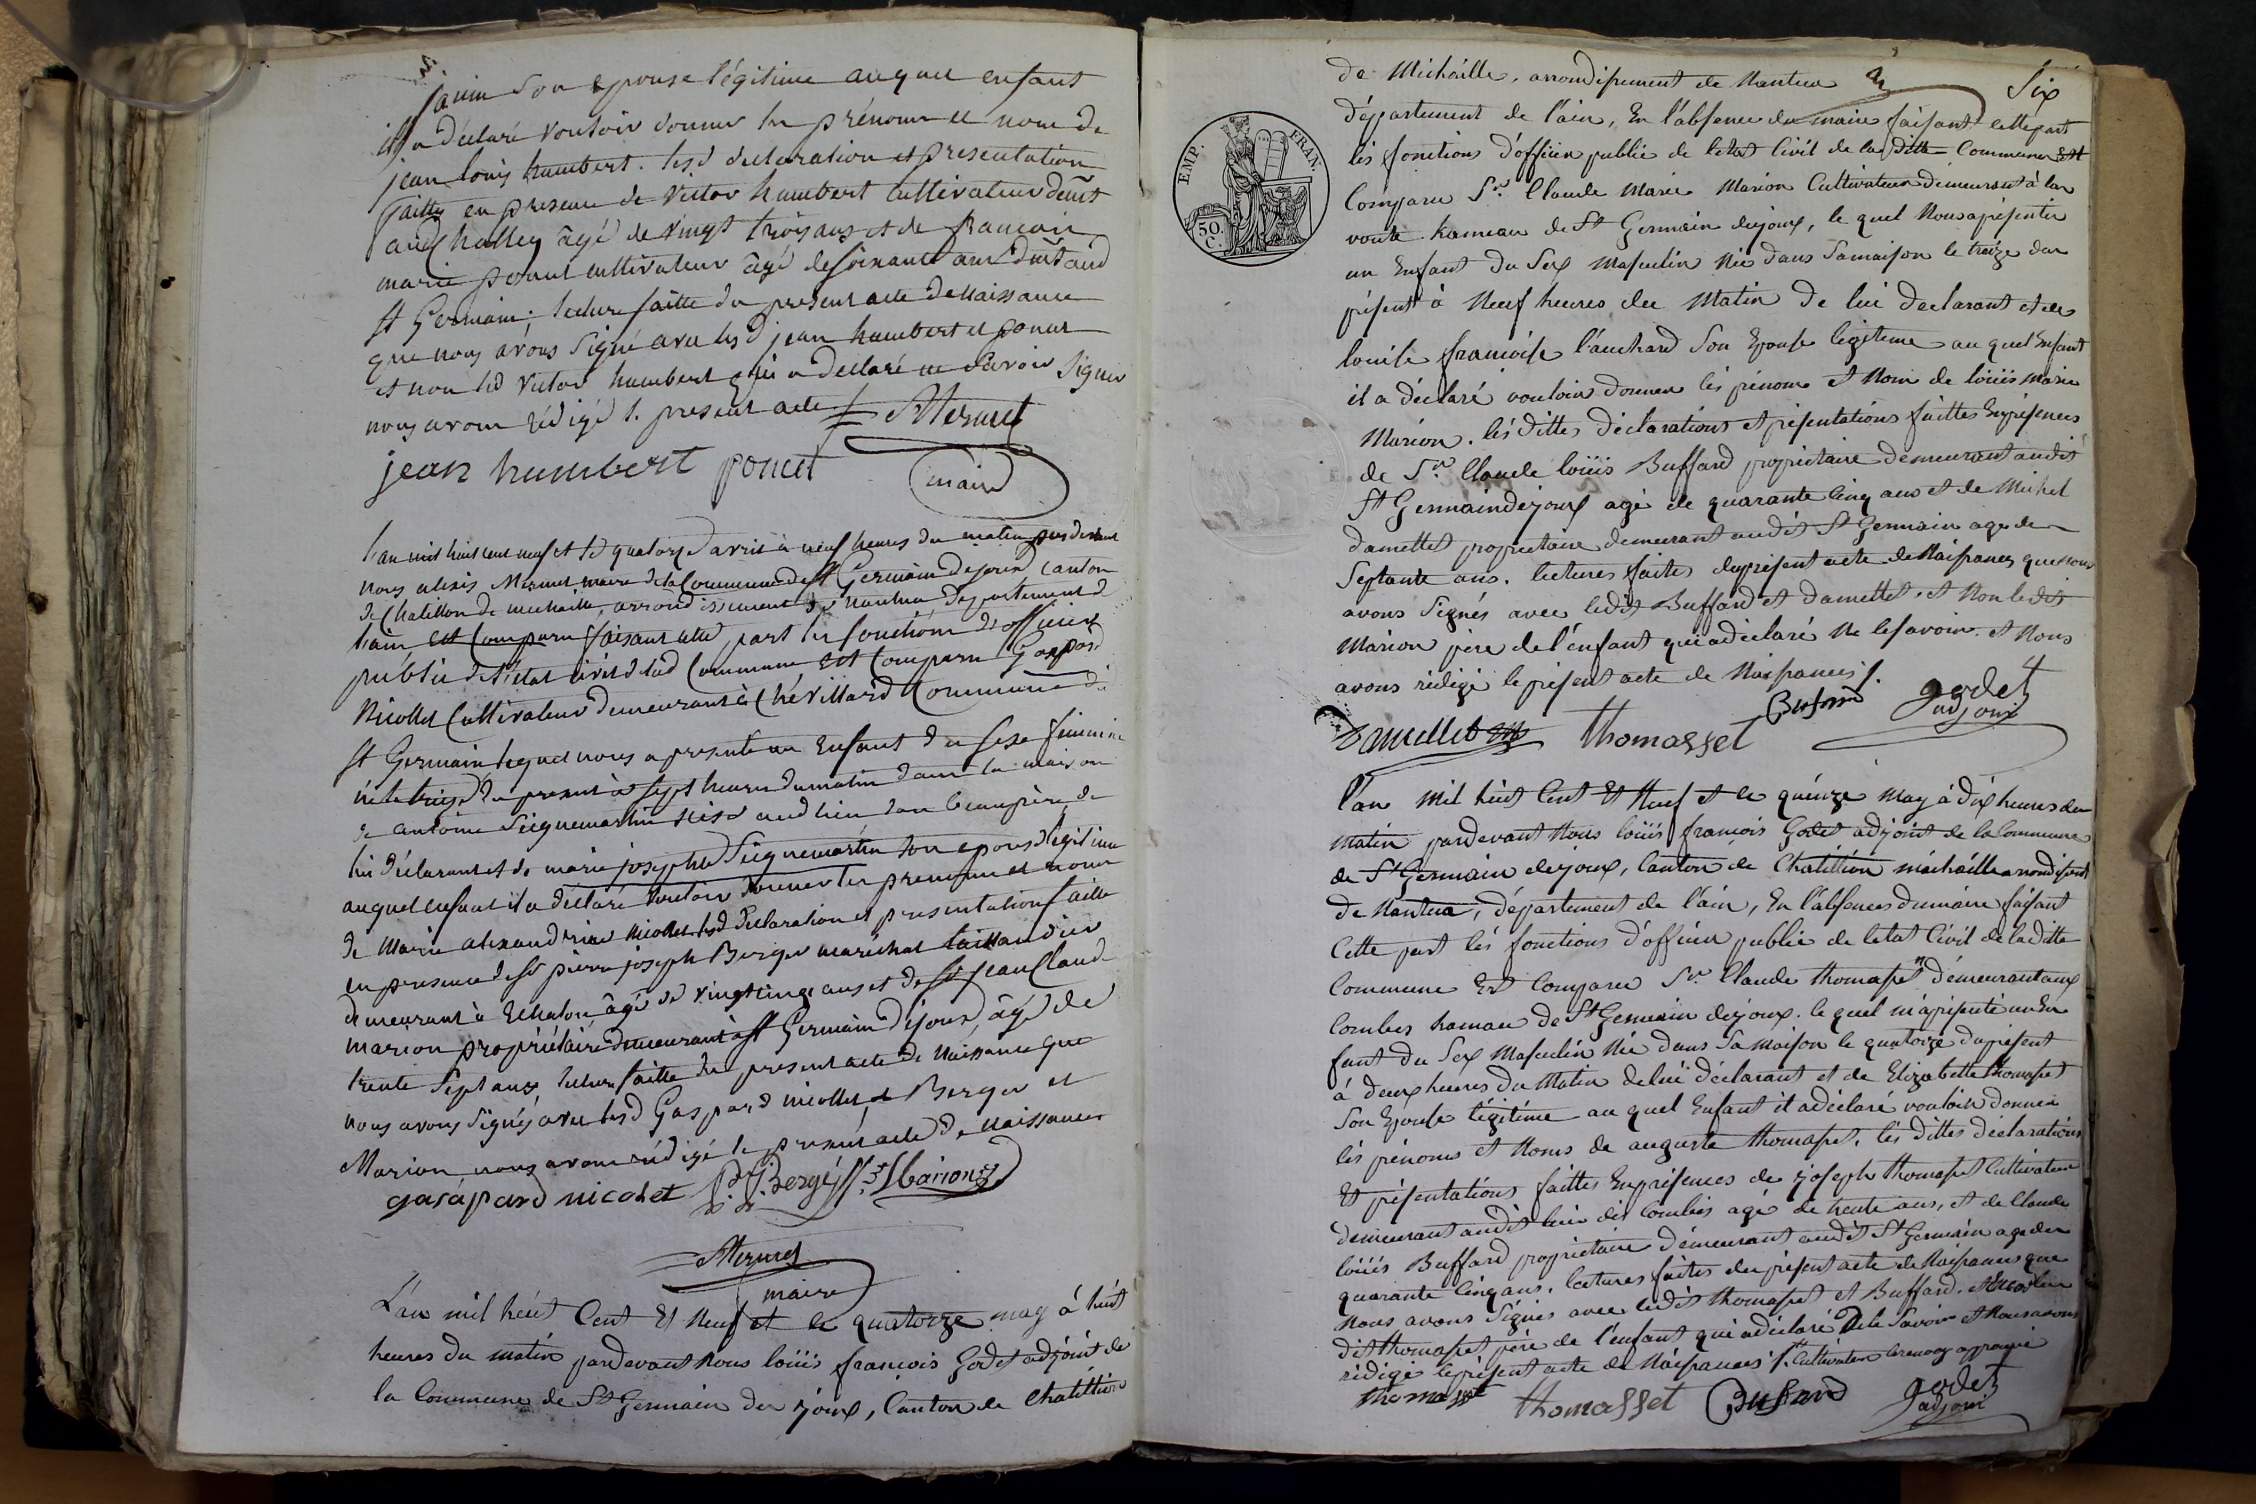 janin Son epouse légitime auquel enfant
il a déclaré vouloir donner les prénoms et nom de
jean louis humbert. lesd declaration et presentation
faittes en presence de Victor humbert cultivateur demt
aud âgé de vingt trois ans et de françois
marie poncet cultivateur âgé de soixante ans demt aud
St Germain; lecture faitte du present acte de Naissance
que nous avons Signé avec lesd jean humbert et poncet
et non led Victor humbert qui a declaré ne Savoir Signer
nous avons rédigé le present acte
jean humbert poncet Mermet
maire
L'an mil huit cent neuf et le quatorze avril à neuf heures du matin par devant
nous alexis Mermet maire de la Commune de St Germain de joux canton
de Chatillon de michaille, arrondissement de nantua, departement de
l'ain est Comparu faisant cette part les fonctions d'officier
public de l'état civil de lad Commune est Comparu Gaspard
Nicollet Cultivateur demeurant à Chévillard Commune de
St Germain lequel nous a presenté un Enfant du sexe féminin
né le treize du present à sept heures du matin dans la maison
de antoine Seignemartin sise aud lieu son beaupère, de
lui déclarant et de marie josephte Seignemartin son epouse légitime
auquel enfant il a déclaré vouloir donner les prenoms et nom
de Marie alexandrine Nicollet lesd Déclaration et presentation faitte
en presence de Sr pierre joseph Berger maréchal taillandier
demeurant à Echalon âgé de vingt cinq ans et de Sr jean Claude
marion propriétaire demeurant à St Germain de joux, âgé de
trente Sept ans, lecture faitte du present acte de Naissance que
nous avons Signés avec lesd Gaspard nicollet, Berger et
Marion nous avons rédigé le present acte de Naissance
gasapard nicolet P. J. Bergé Marion
Mermet
maire
L'an mil héut Cent Et Neuf et le quatorze may á húit
heures du matin pardevant Nous loüis francois Godet adjoint de
la Commune de St Germain de joux, Canton de Chatillion
Six
EMP. FRAN.
50. C.
de Michaille, arrondissement de Nantua
département de l'ain, En l'absence du maire faisant cette part
les fonctions d'officier public de letat Civil de la ditte Commune Est
Comparu Sr. Claude Marie Marion Cultivateur demeurant à la
voute hameau de St Germain dejoux, le quel Nous a présenté
un Enfant du Sex Masculin Né dans Samaison le traize du
présent à Neuf heures du Matin de lui declarant et de
louise francoise l'auchard Son Epouse legitime au quel Enfant
il a déclaré vouloir donner les prénoms et Nom de loüis Marie
Marion. les dittes déclarations et présentations faittes En présences
de Sr. Claude loüis Buffard propriétaire demeurant audit
St Germain dejoux agé de quarante Cinq ans et de Michel
damettet proprietaire demeurant audit St Germain age de
Septante ans. lectures faites du présent acte de Naissance que nous
avons Signés avec ledit Buffard et damettet, et Non ledit
Marion père de l'enfant qui a déclaré Ne le Savoir. et Nous
avons rédigé le présent acte de Naissances /.
Thomasset Bufard godet
adjoin
L'an Mil héut Cent Et Neuf et le quéinze May à dix heures du
matin pardevant Nous loüis francois Godet adjoint de la Commune
de St Germain dejoux, Canton de Chatillion michaille arrondisent
de Nantua, département de l'ain, En l'absences du maire faisant
Cette part les fonctions d'officier public de letat Civil de la ditte
Commune Est Comparu Sr. Claude thomasset demeurant aux
Combes hamau de St Germain dejoux. le quel m'a présenté un En
fant du Sex Masculin Né dans Sa Maison le quatorze du présent
à deux heures du Matin de lui déclarant et de Elizabette thomasset
Son Epouse légitime au quel Enfant il a déclaré vouloir donner
les prénoms et Noms de auguste thomasset, les dittes déclarations
Et présentations faittes En présences de joseph thomasset Cultivateur
demeurant audit lieu des Combes agé de trente ans, et de Claude
loüis Buffard propriétaire demeurant audit St Germain age de
quarante Cinq ans. lectures faites du présent acte de Naissance que
Nous avons Signés avec ledit thomasset et Buffard, et Non le
dit thomasset père de l'enfant qui a déclaré Ne le Savoir et Nous avons
rédigé le présent acte de Naissances /. Cultivateur le renvoy approuvé
thomasset thomasset Bufard godet
adjoin